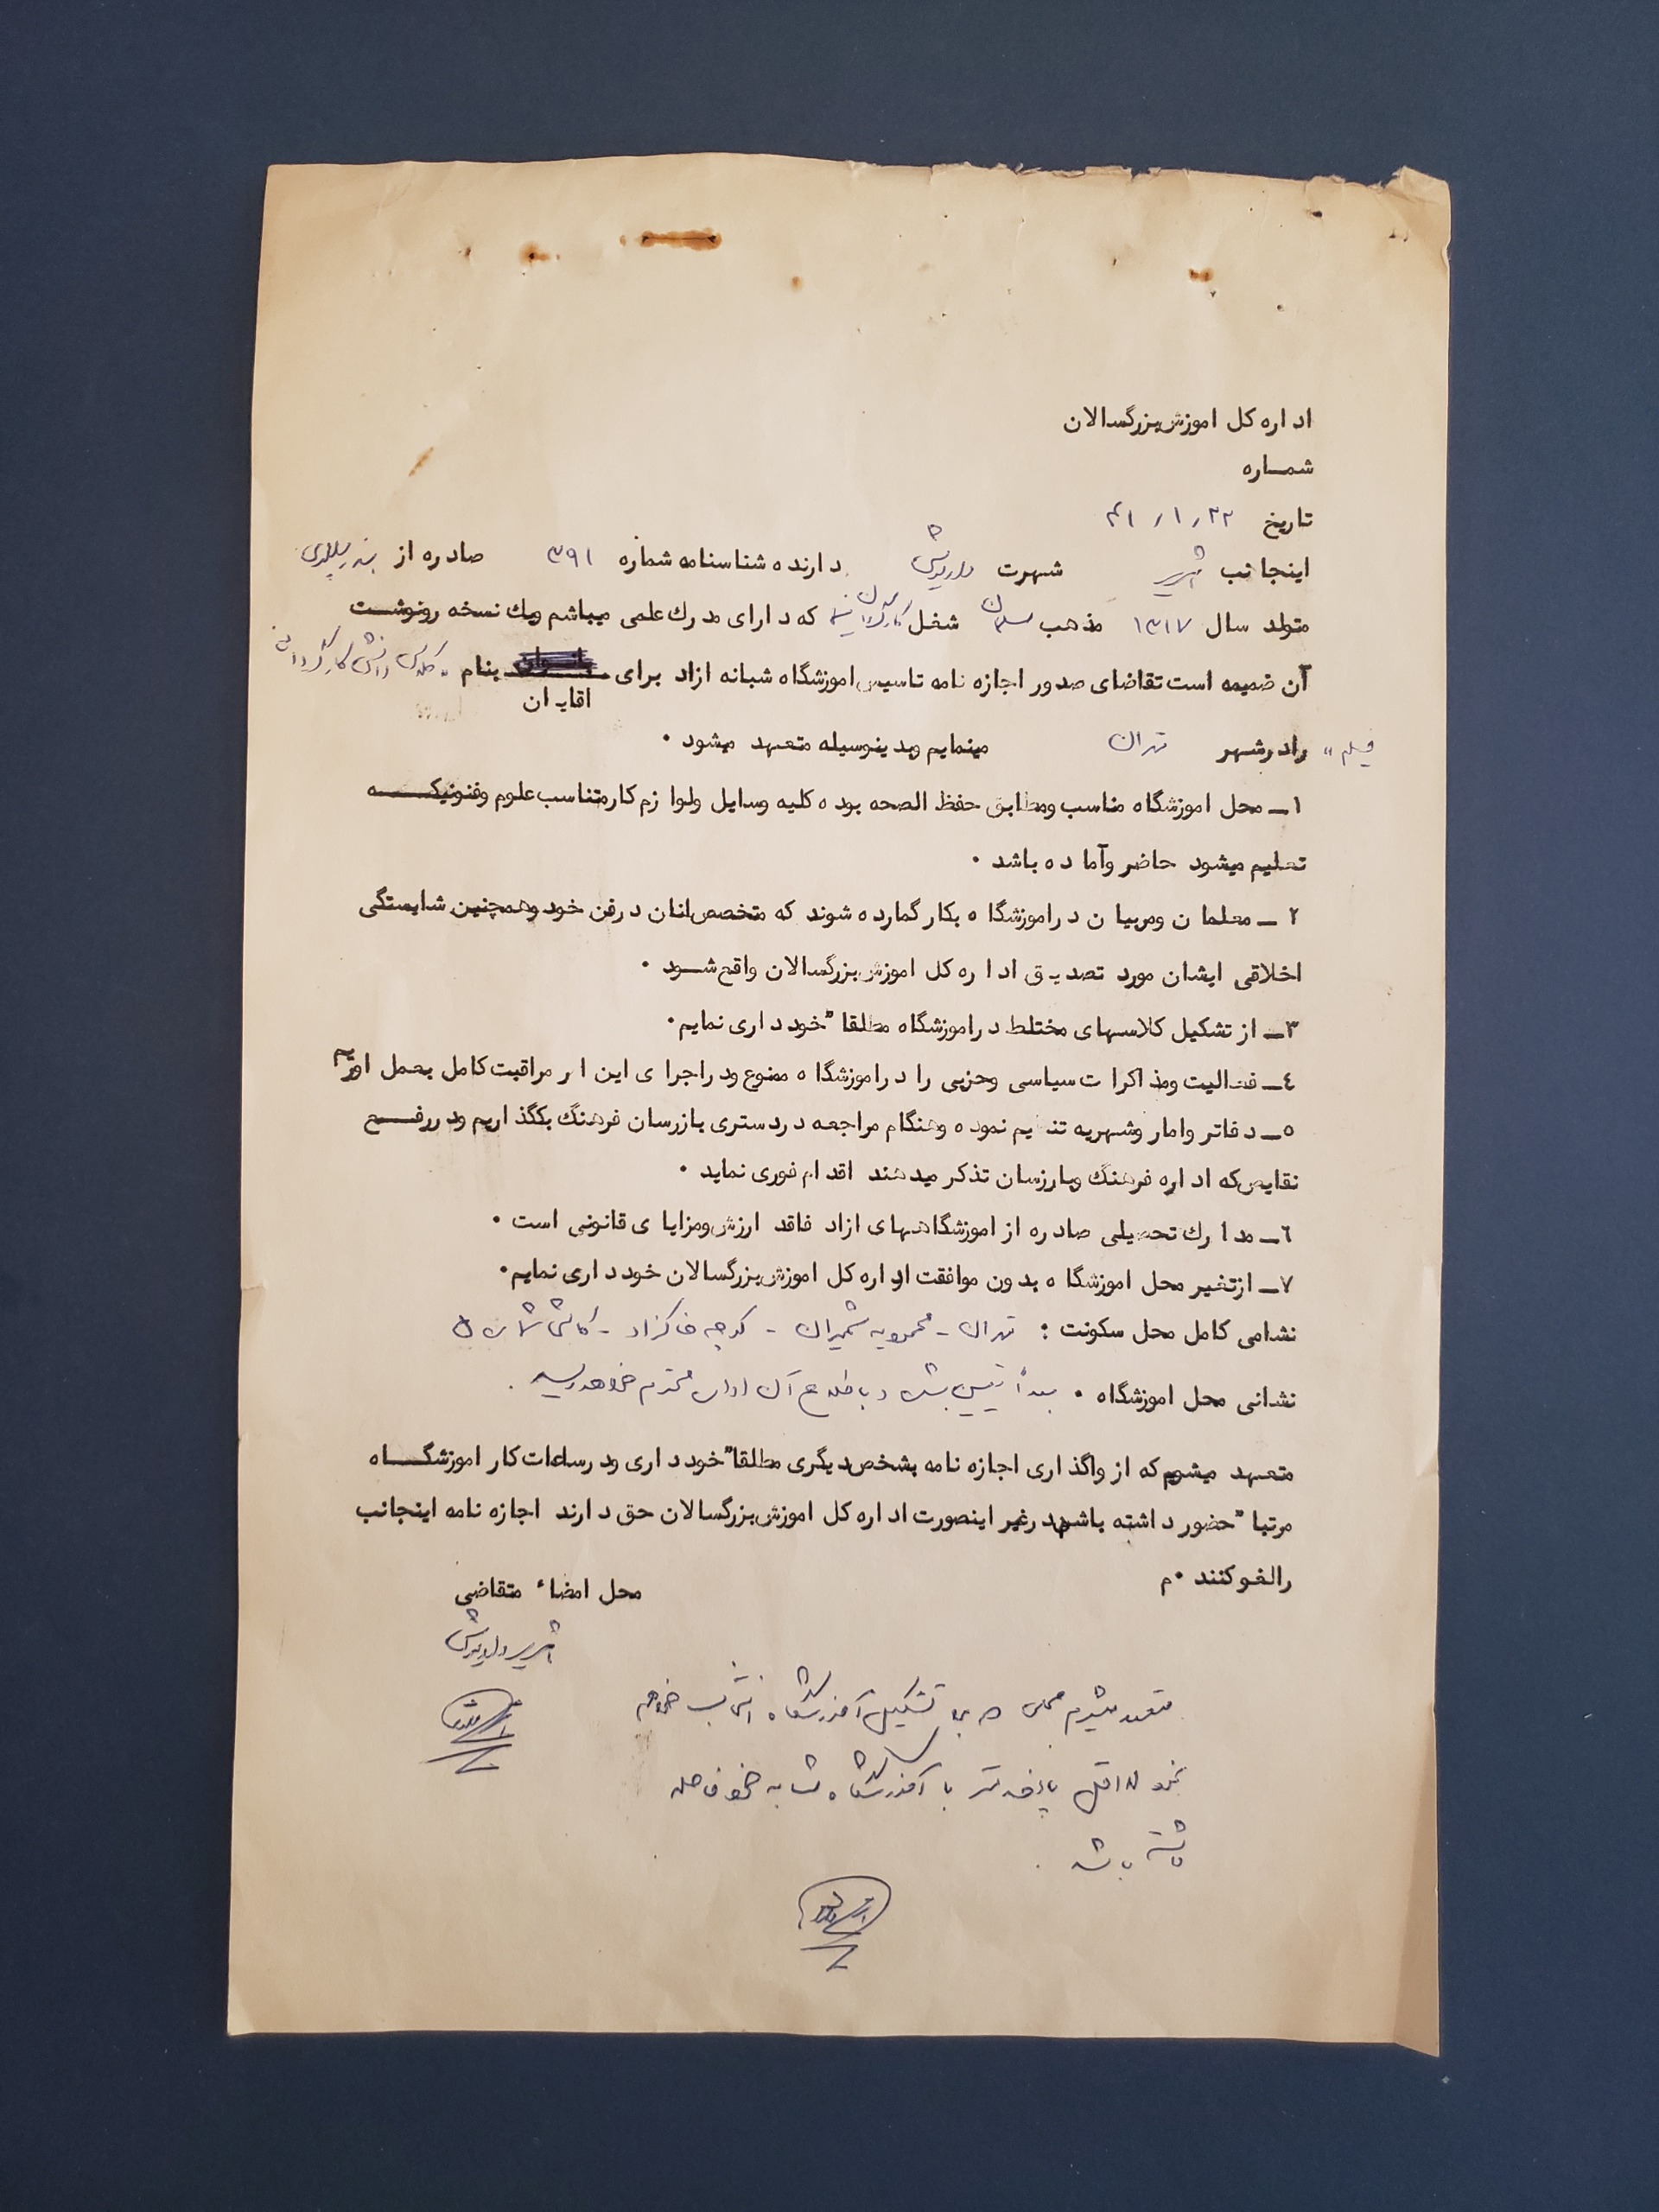 اداره کل اموزش بزرگسالان
شمــاره
تاریخ ۴۱/۱/۲۲
اینجانب شهرت دارنده شناسنامه شماره ۳۹۱ صادره از بندر پهلوی
متولد سال ۱۳۱۷ مذهب مسلمان شغل کارگردان که دارای مدرك علمی میباشم ویك نسخه رونوشــت
آن ضمیمه است تقاضای صدور اجازه نامه تاسیس اموزشگاه شبانه ازاد برای بانــوان بنام " کلاس دانش کارگردانی
اقایان
فیلم " رادرشهر تهران مینمایم وبدینوسیله متعهد میشود ۰
۱ــ محل اموزشگاه مناسب ومطابق حفظ الصحه بوده کلیه وسایل ولوازم کار متناسب علوم وفنونیکــــــه
تعلیم میشود حاضر وآماده باشد ۰
۲ ــ معلمان ومربیان در اموزشگاه بکار گمارده شوند که متخصص انان درفن خود وهمچنین شایستگی
اخلاقی ایشان مورد تصدیق اداره کل اموزش بزرگسالان واقع شــود ۰
۳ــ از تشکیل کلاسهای مختلط در اموزشگاه مطلقا" خودداری نمایم۰
٤ــ فعالیت ومذاکرات سیاسی وحزبی را در اموزشگاه ممنوع ودر اجرای این امر مراقبت کامل بعمل اوریم
٥ــ دفاتر وامار وشهریه تنظیم نموده وهنگام مراجعه دردستری بازرسان فرهنگ بگذاریم ودررفــــع
نقایص که اداره فرهنگ وبارزسان تذکر میدهند اقدام فوری نماید ۰
٦ــ مدارك تحصیلی صادره از اموزشگاههای ازاد فاقد ارزش ومزایای قانونی است ۰
۷ــ از تغیر محل اموزشگاه بدون موافقت اداره کل اموزش بزرگسالان خودداری نمایم۰
نشامی کامل محل سکونت : تهران - محمودیه شمیران - کوچه خاکزاد - کاشی شماره ۵
نشانی محل اموزشگاه ۰ بعداً تعیین شده و باطلاع آن اداره محترم خواهد رسید .
متعهد میشوم که از واگذاری اجازه نامه بشخص دیگری مطلقا" خودداری ودرساعات کار اموزشگــــاه
مرتبا" حضور داشته باشم درغیر اینصورت اداره کل اموزش بزرگسالان حق دارند اجازه نامه اینجانب
رالغو کنند ۰م
محل امضاء متقاضی
متعهد میشوم محلی که برای تشکیل آموزشگاه انتخاب خواهم
نمود لااقل پانصد متر با آموزشگاه مشابه خود فاصله
داشته باشد .